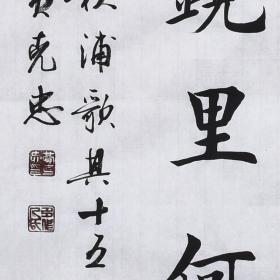 鏡里何
秋浦歌其十五
克忠